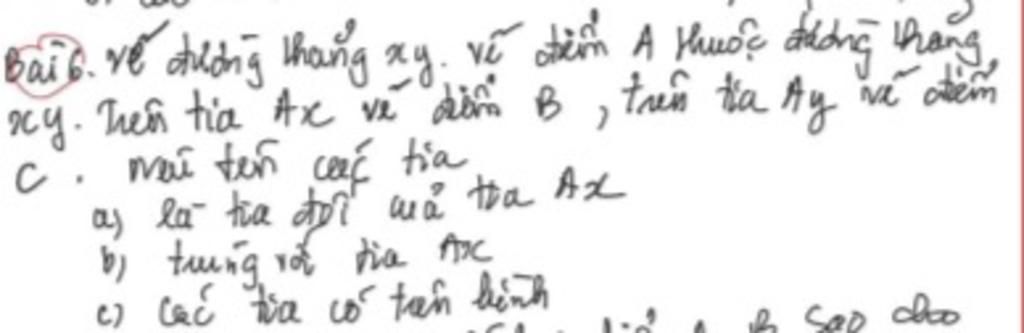 Bài 6. vẽ đường thẳng xy. vẽ điểm A thuộc đường thẳng
xy. Trên tia Ax vẽ điểm B, trên tia Ay vẽ điểm
C. nêu tên các tia
a) là tia đối của tia Ax
b) trùng với tia Ax
c) Các tia có trên hình
A, B sao cho